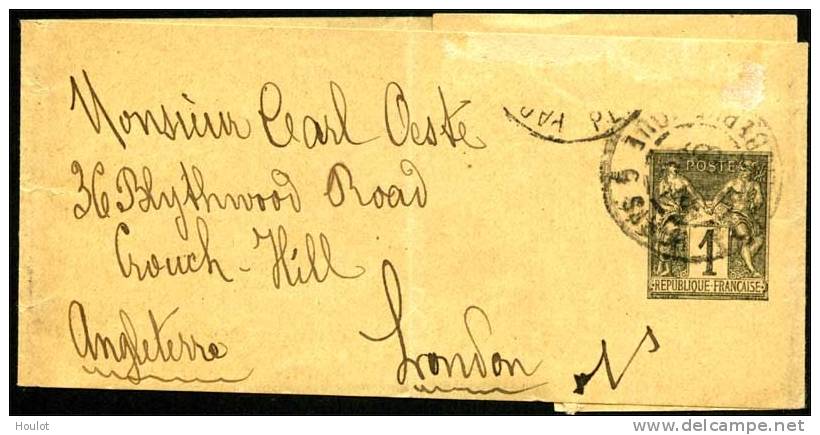 Monsieur Cearl Oeste
36 Blythwood Road
Crouch-Hill
Angleterre
London N
POSTES
1
REPUBLIQUE-FRANCAISE
PAR
Houlot
delcampe.net